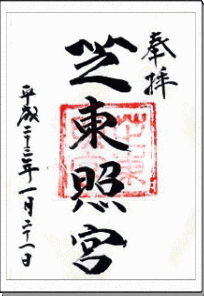 奉拝
芝東照宮
平成二十三年一月二十一日